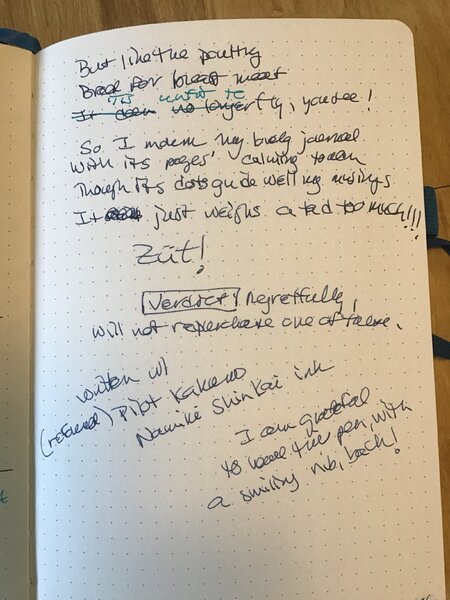 But like the poultry
Bred for breast meat
Tis unfit to
It can no longer fly, you see!
So I mourn my bulky journal
With its pages' calming touch
Though its dots guide well my writings
It just weighs a tad too much!!!
Züt!
Verdict: Regretfully,
will not repurchase one of these.
written w/
(returned) Pilot Kakuno
Namiki Shin Kai ink
I am grateful
to have the pen, with
a smiling nib, back!